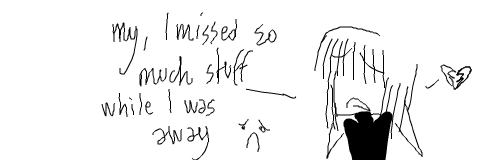 my, I missed so
much stuff
while I was
away